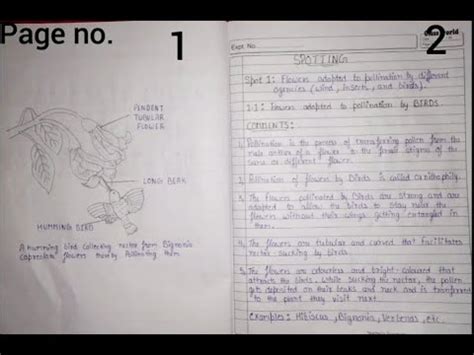 Page no. 1
2
Class World
Expt. No.
PENDENT
TUBULAR
FLOWER
LONG BEAK
HUMMING BIRD
A humming bird collecting nectar from Bignonia
Capreolata flowers thereby Pollinating them
SPOTTING
Spot 1: Flowers adapted to pollination by different
agencies (wind, insects, and birds).
1.1: Flowers adapted to pollination by BIRDS.
COMMENTS:
1. Pollination is the process of transferring pollen from the
male anther of a flower to the female stigma of the
same or different flower.
2. Pollination of flowers by Birds is called Ornithophily.
3. The flowers pollinated by Birds are strong and are
adapted to allow the birds to stay near the
flowers without their wings getting entangled in
them.
4. The flowers are tubular and curved that facilitates
nectar sucking by birds.
5. The flowers are odourless and bright-coloured that
attracts the birds. While sucking the nectar, the pollen
gets deposited on their beaks and neck and is transferred
to the plant they visit next.
Examples: Hibiscus, Bignonia, Verbenas, etc.